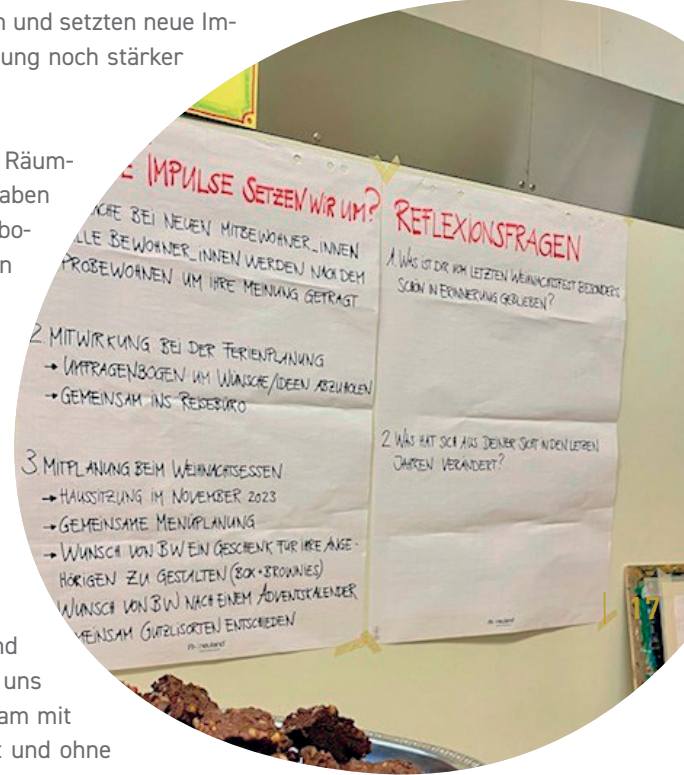 n und setzten neue Im-
ung noch stärker
Räum-
aben
bo-
n
E IMPULSE SETZEN WIR UM?
ACHE BEI NEUEN MITBEWOHNER_INNEN
LLE BEWOHNER_INNEN WERDEN NACH DEM
PROBEWOHNEN UM IHRE MEINUNG GEFRAGT
2. MITWIRKUNG BEI DER FERIENPLANUNG
→ UMFRAGENBOGEN UM WÜNSCHE/IDEEN ABZUHOLEN
→ GEMEINSAM INS REISEBÜRO
3. MITPLANUNG BEIM WEIHNACHTSESSEN
→ HAUSSITZUNG IM NOVEMBER 2023
→ GEMEINSAME MENÜPLANUNG
→ WUNSCH VON BW EIN GESCHENK FÜR IHRE ANGE-
HÖRIGEN ZU GESTALTEN (BOX+BROWNIES)
WUNSCH VON BW NACH EINEM ADVENTSKALENDER
MEINSAM GUTZLISORTEN ENTSCHIEDEN
neuland
REFLEXIONSFRAGEN
1. WAS IST DIR VOM LETZTEN WEIHNACHTSFEST BESONDERS
SCHÖN IN ERINNERUNG GEBLIEBEN?
2. WAS HAT SICH AUS DEINER SICHT IN DEN LETZEN
JAHREN VERÄNDERT?
neuland
17
nd
uns
am mit
t und ohne